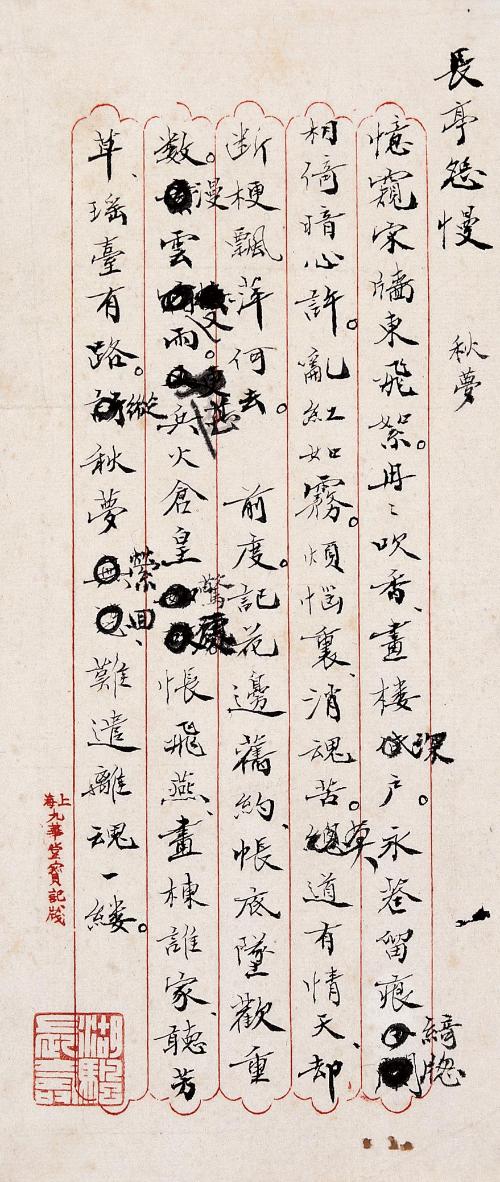 長亭怨慢　秋夢
憶窺宋牆東飛絮。冉冉吹香、畫樓深户。永巷留痕綺牕
相倚暗心許。亂紅如霧。煩惱裏、消魂苦。莫道有情天、却
断梗飄萍何去。　前度。記花邊舊約、帳底墜歡重
数。漫雲雨。兵火倉皇驚處悵飛燕、畫棟誰家、聽芳
草、瑶臺有路。縱秋夢縈回、難遣離魂一縷。
上海九華堂寶記牋